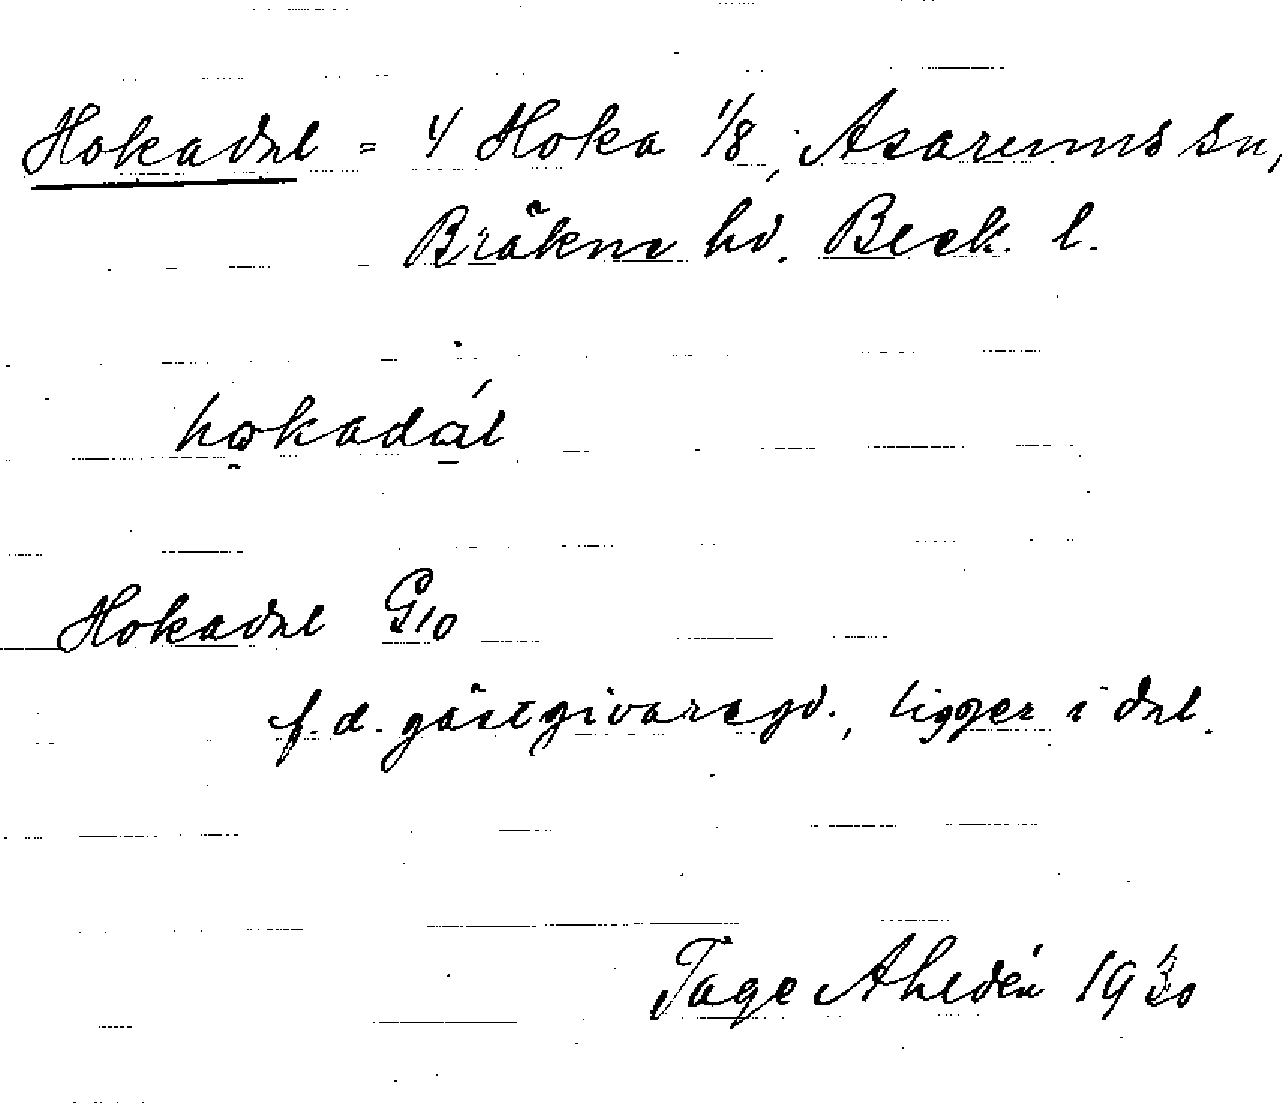 Hokadal = 4 Hoka 1/8, Asarums sn,
Bräkne hd. Blek. l.
hokadál
Hokadal G10
f.d. gästgivaregd., ligger i dal.
Tage Ahldén 1930